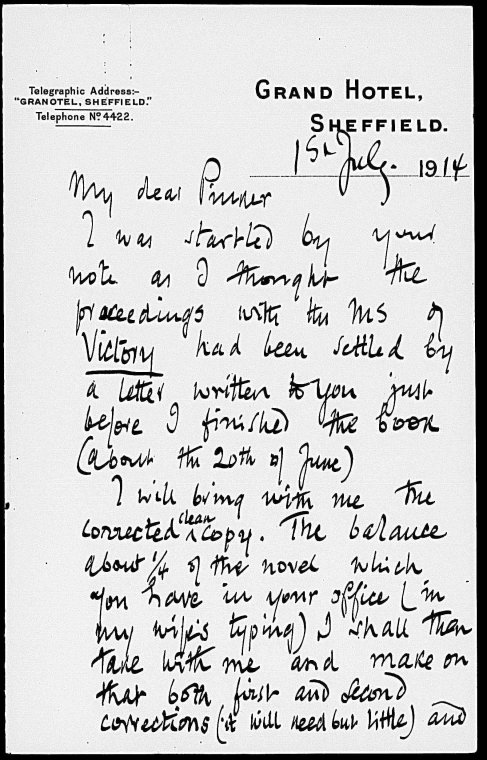 Telegraphic Address:-
"GRANOTEL, SHEFFIELD."
Telephone Nº 4422.
GRAND HOTEL,
SHEFFIELD.
1st July. 1914
My dear Pinker
I was startled by your
note as I thought the
proceedings with the MS of
Victory had been settled by
a letter written to you just
before I finished the book
(about the 20th of June)
I will bring with me the
corrected clean copy. The balance
about 1/4 of the novel which
you have in your office (in
my wife's typing) I shall then
take with me and make on
that both first and second
corrections (it will need but little) and